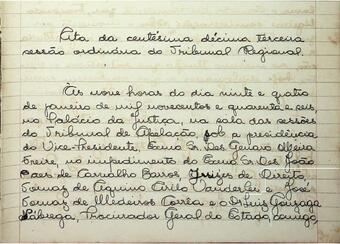 Ata da centésima décima terceira
sessão ordinária do Tribunal Regional.
Às nove horas do dia vinte e quatro
de janeiro de mil novecentos e quarenta e seis,
no Palácio da Justiça, na sala das sessões
do Tribunal de Apelação, sob a presidência
do Vice-Presidente, Exmo Sr. Des Genaro Freire,
Freire, no impedimento do Exmo Sr. Des João
Paes de Carvalho Barros, Juizes de Direito,
Tomaz de Aquino Cirilo Vanderlei e José
Tomaz de Medeiros Corrêa e o Dr Luis Gonzaga
Nóbrega, Procurador Geral do Estado, comigo,